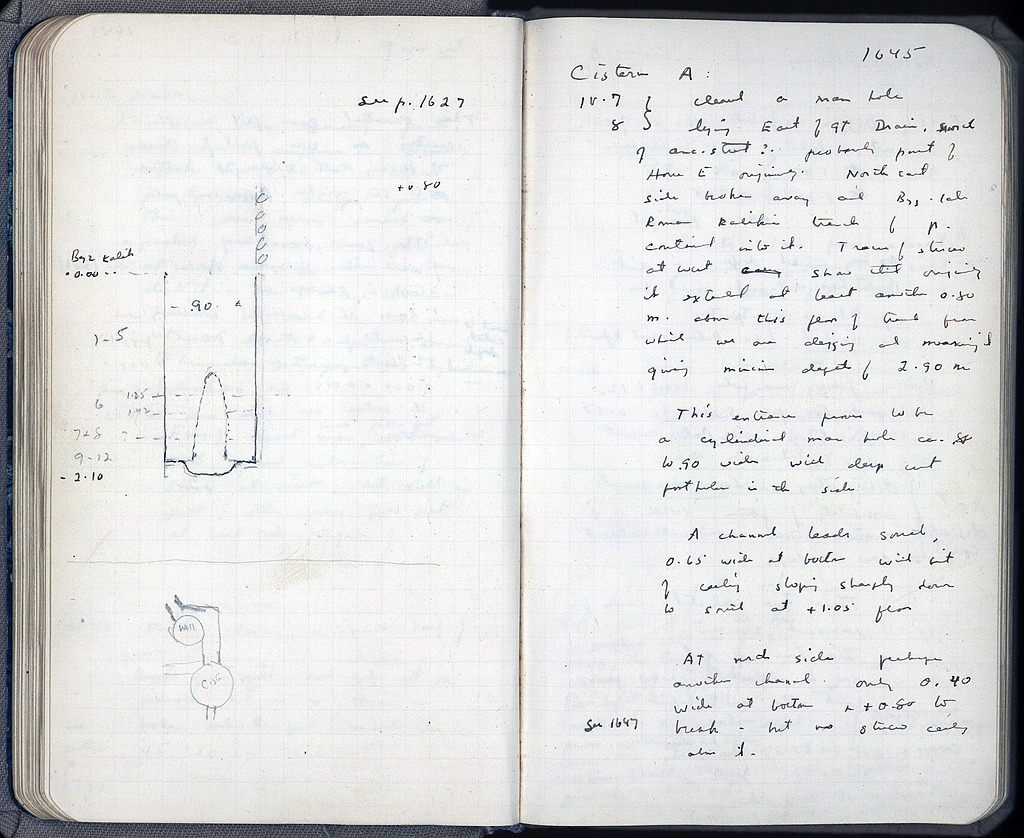 See p. 1627
+0.80
Byz Kalik
0.00
.90
1-5
6
1.25
1.42
7-8
9-12
- 2.10
Well
Cist
1645
Cistern A:
IV.7 } cleared a man hole
8 } lying East of gt Drain, south
of anc. street?.. probably part of
House E originally. North east
side broken away and Byz.
Roman trench of p.
continued into it. Traces of stucco
at west show originally
it extended at least another 0.80
m. above this floor of trench from
which we are digging and measuring
giving minimum depth of 2.90 m
This entrance proves to be
a cylindrical man hole ca.
to .90 wide with deep cut
footholes in the side
A channel leads south,
0.65 wide at bottom with cut
of ceiling sloping sharply down
to south at +1.05 floor
At north side perhaps
another channel. only 0.40
wide at bottom +0.80 to
See 1647 break - but no stucco ceiling
above it.